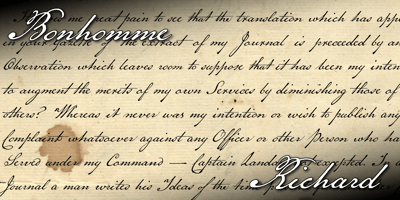 Bonhomme
me great pain to see that the translation which has app
in your gazette of the extract of my Journal is preceeded by an
Observation which leaves room to suppose that it has been my inten
to augment the merits of my own Services by diminishing those of
others? "Whereas it never was my intention or wish to publish any
Complaint whatsoever against any Officer or other Person who ha
Served under my Command — Captain Land excepted. In a
Journal a man writes his Ideas of the
Richard